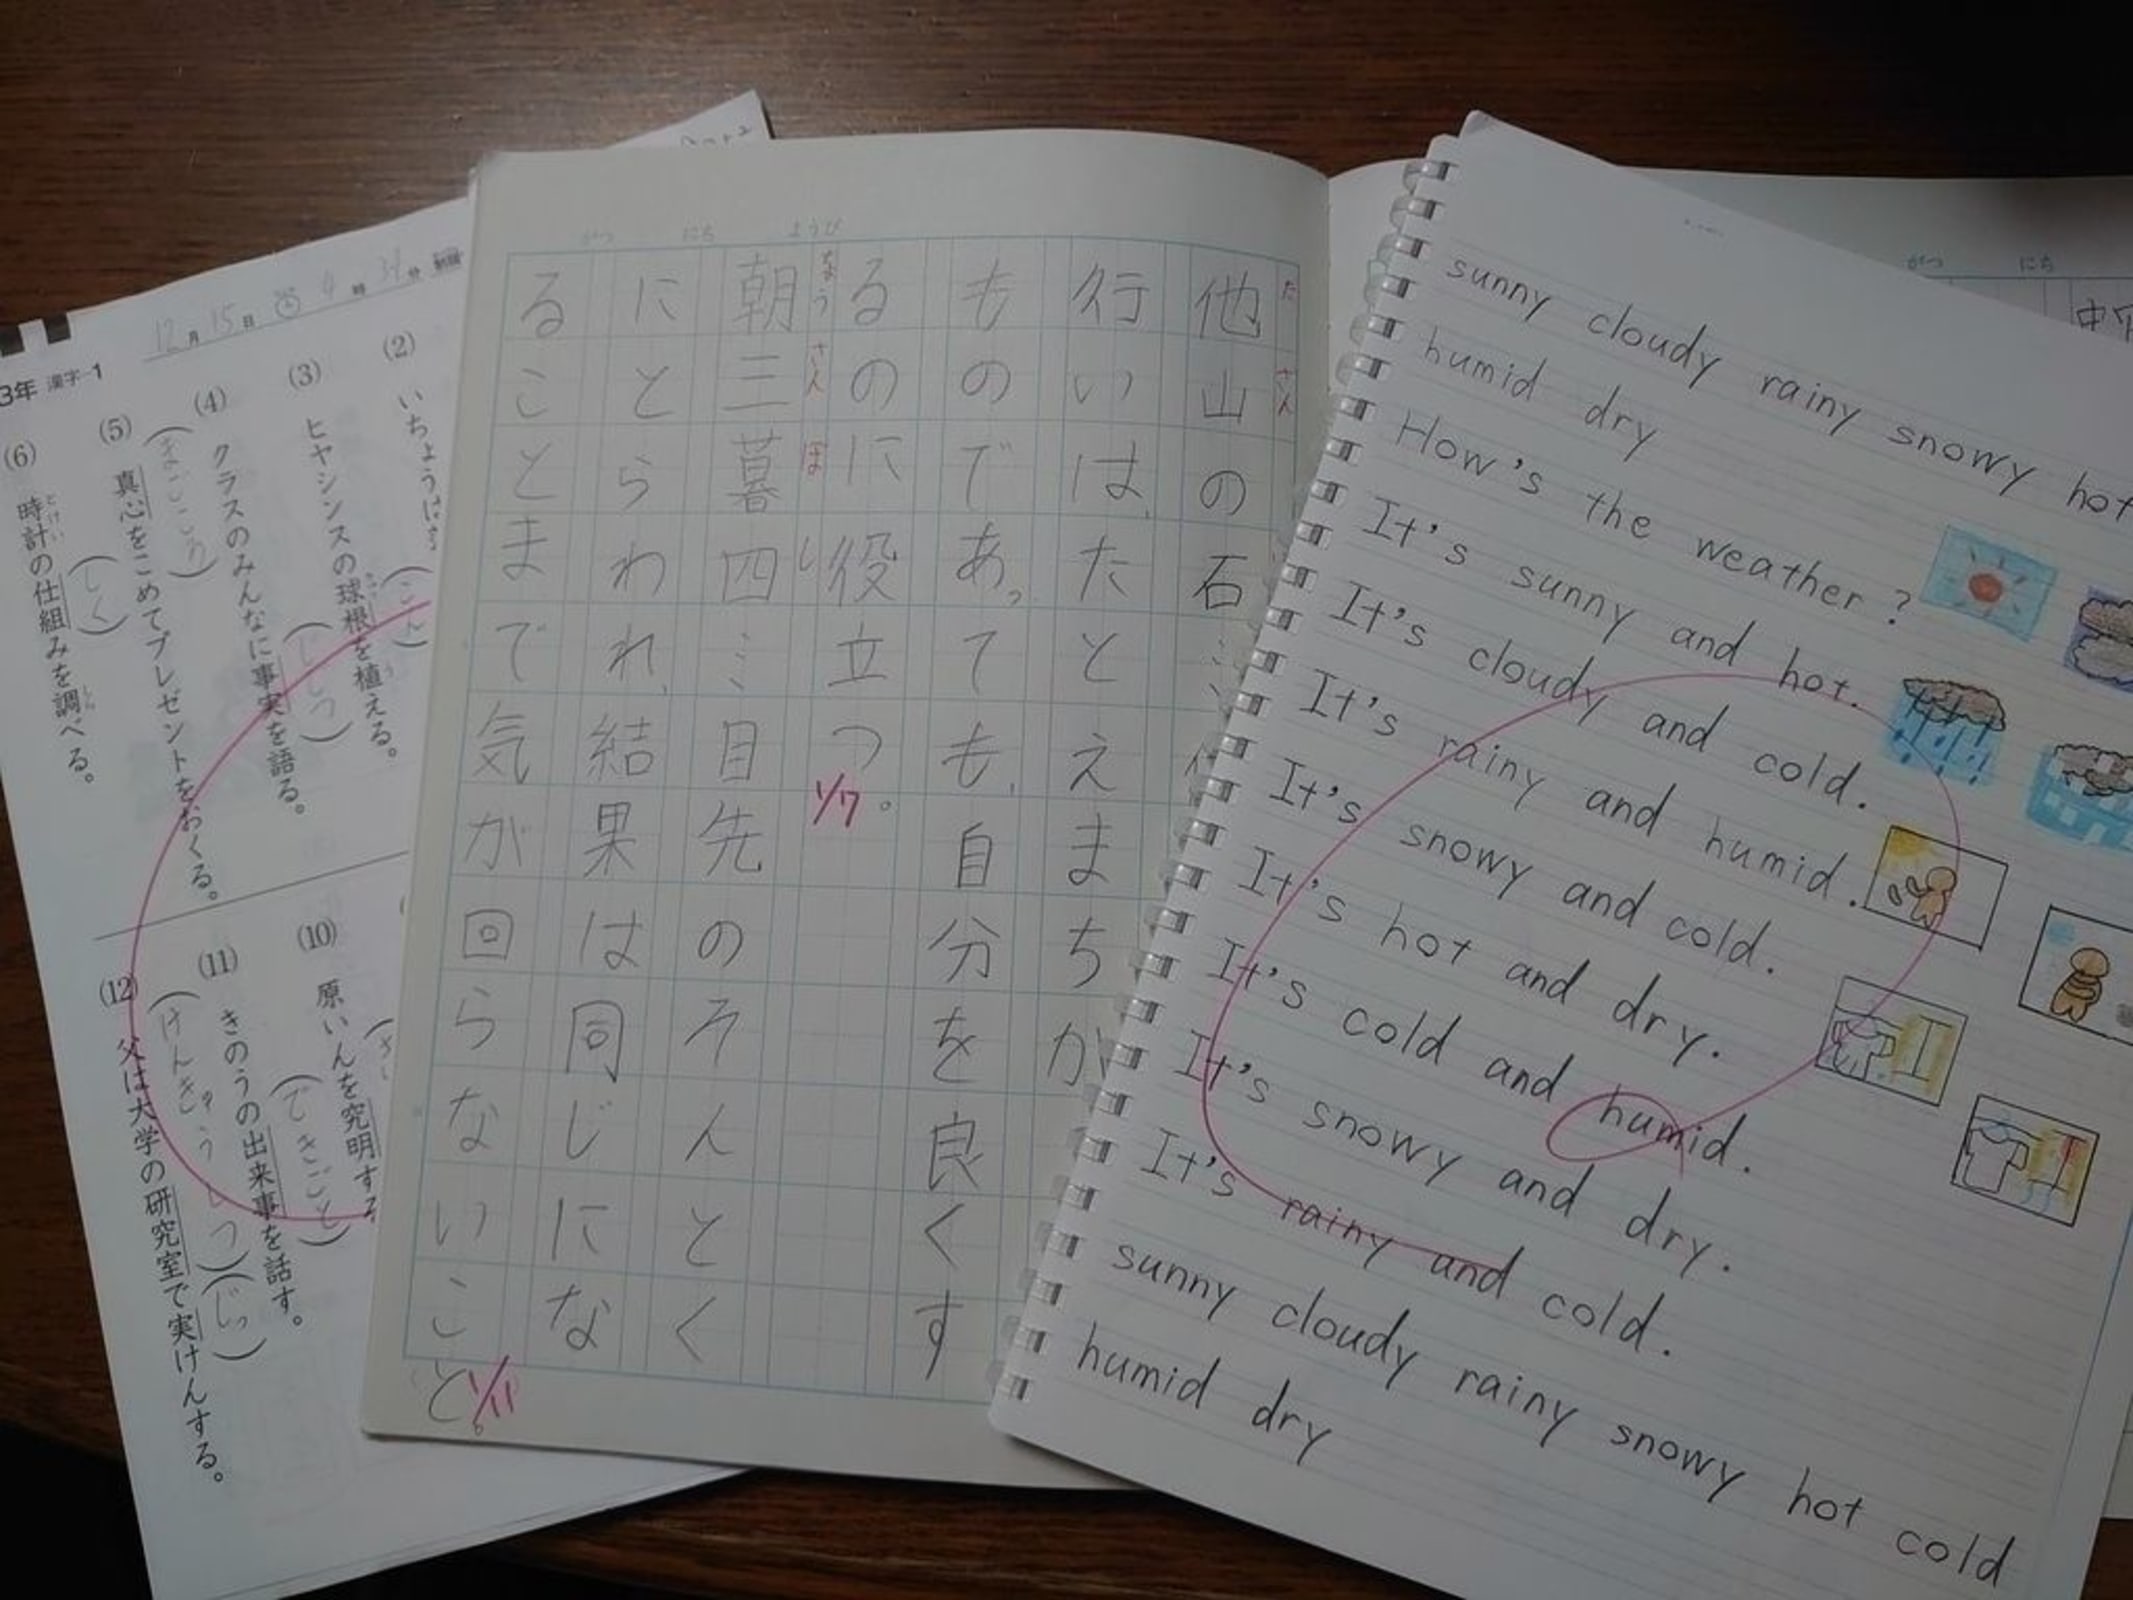 12月15日 4時31分
3年 漢字-1
(2) いちょう
(3) ヒヤシンスの球根を植える。
(こん)
(4) クラスのみんなに事実を語る。
(じじつ)
(5) 真心をこめてプレゼントをおくる。
(まごころ)
(6) 時計の仕組みを調べる。
とけい
しら
(しく)
(10) 原いんを究明する
(11) きのうの出来事を話す。
(できごと)
(12) 父は大学の研究室で実けんする。
(けんきゅうしつ)(じっ)
がつ にち ようび
他山の石…
たさん
行いは、たとえまちが
ものであっても、自分を良くす
るのに役立つ。
1/7
朝三暮四…目先のそんとく
ちょうさんぼし
にとらわれ、結果は同じにな
ることまで気が回らないこと。
1/11
がつ にち
sunny cloudy rainy snowy hot
humid dry
How's the weather?
It's sunny and hot.
It's cloudy and cold.
It's rainy and humid.
It's snowy and cold.
It's hot and dry.
It's cold and humid.
It's snowy and dry.
It's rainy and cold.
sunny cloudy rainy snowy hot cold
humid dry